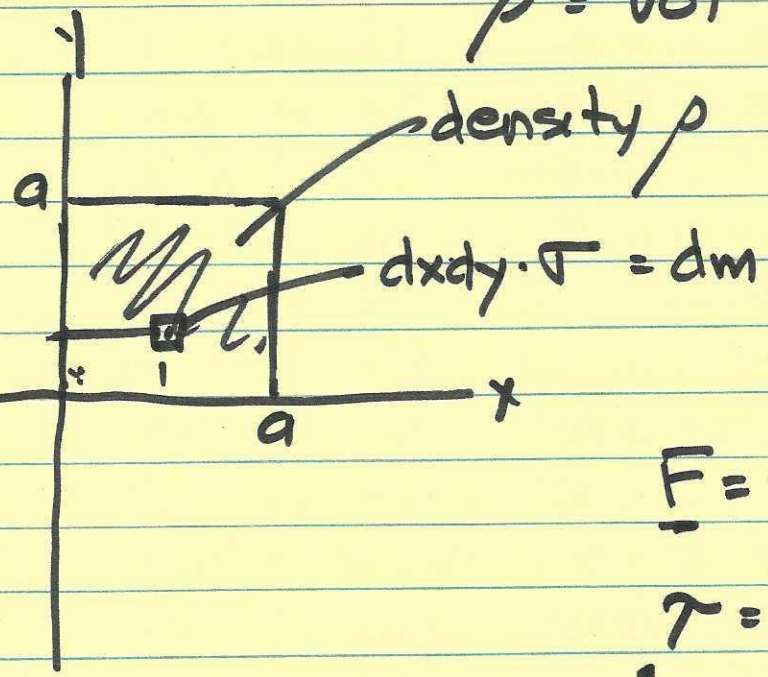 y
ρ = vol
density ρ
a
dxdy·σ = dm
a
x
F =
τ =